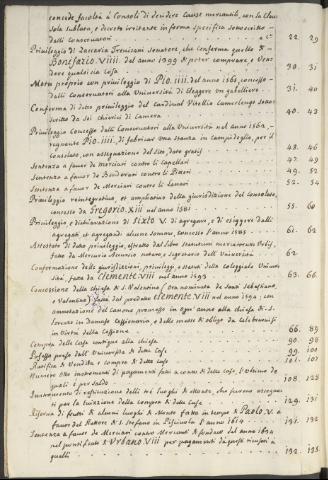 concede facoltà à Consoli di decidere cause mercantili, con la clau
sola sublata, e decreto irritante in forma specifica sonoscritto
dalli Conservatori 22. 29
Privilegio di Saccaria Trevisani senatore, che conferma quello di
Bonifazio VIIII. del anno 1399 di poter comprare, e ven
dere qualsisia cosa 30. 31
Motu proprio con privilegio di Pio IIII. del anno 1560, concesso
dalli Conservatori alla Università di eleggere un gabelliere 31. 40
Conferma di detto privilegio del Cardinal Vitellio Camerlengo sotto
scritta da sei chierici di Camera 40. 43
Privilegio concesso dalli Conservatori all Università nel anno 1562,
regnante Pio IIII. di fabricare una stanza in Campidoglio, per il
Consolato, con assegnazione del sito, dato gratis 48. 46
Sentenza a favore de merciari contro li Capellari 47. 49
Sentenza a favore de Banderari contro li Pianari 49. 52
Sentenza a favore de Merciari contro li lanari 52. 54
Privilegio reintegrativo, et ampliativo della giurisditione del Consolato,
concesso da Gregorio XIII nel anno 1581 55. 60
Privilegio, e dichiarazione di Sisto V. di agregare, e di esiggere dalli
agregati et agregandi alcune somme, concesso l'anno 1585 61. 62
Attestato di detto privilegio, estratto dal libro statutum mercatorum Urbis,
fatto da Mercurio Acursio notaro, e segretario dell Università 62
Confermazione delle giurisditioni, privilegi, e stanza della colleggiale Univer
sità, fatta da Clemente VIII nel anno 1593 63. 66
Concessione della chiesa di S. Valentino (ora nominata de Santi Sebastiano,
e Valentino) fatta dal predetto Clemente VIII nel anno 1594, con
annotazione del canone promesso in ogni anno alla chiesa di S.
Lorenzo in Damaso Cessionaria, e delle messe di obligo da celebrarsi
in virtù della Cessione 66. 89
Compra delle case contigue alla chiesa 90. 98
Possesso preso dall Università di dette case 99. 100
Ratifica di Vendita e compra di dette case 101. 107
Numero otto instromenti di pagamenti fatti a conto di dette case, l'ultimo de
quali è per saldo 108. 128
Instromento di restituzione delli tre luoghi di Monte, che furono assegna
ti per la evizione della compra di dette Case 129. 131
Riforma di frutti di alcuni luoghi di Monte fatta in tempo di Paolo V. a
favor del Rettore di S. Stefano in Pisciuola l'anno 1614 131. 132
Sentenza a favore de Merciari contro Mercanti di fondaco del anno 1634
nel pontificato di Urbano VIII per pagamenti da questi ricusati à
quelli 132. 135